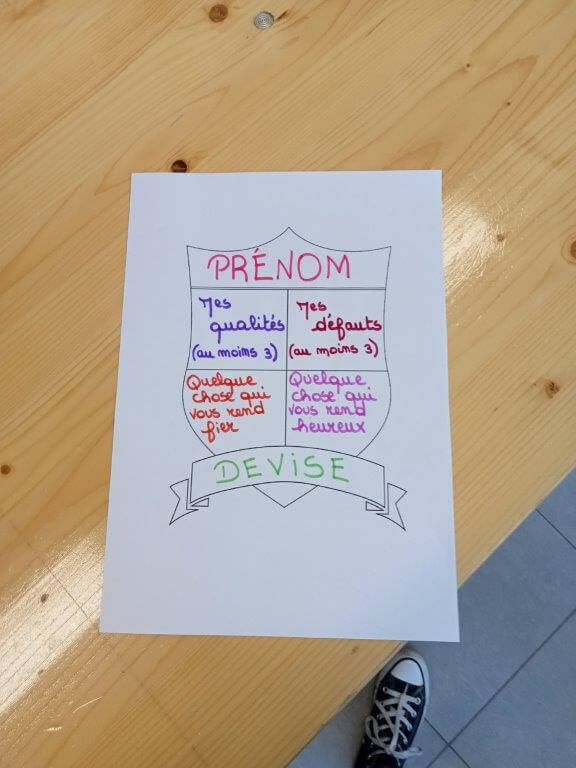 PRÉNOM
Mes
qualités
(au moins 3)
Mes
défauts
(au moins 3)
Quelque
chose qui
vous rend
fier
Quelque
chose qui
vous rend
heureux
DEVISE